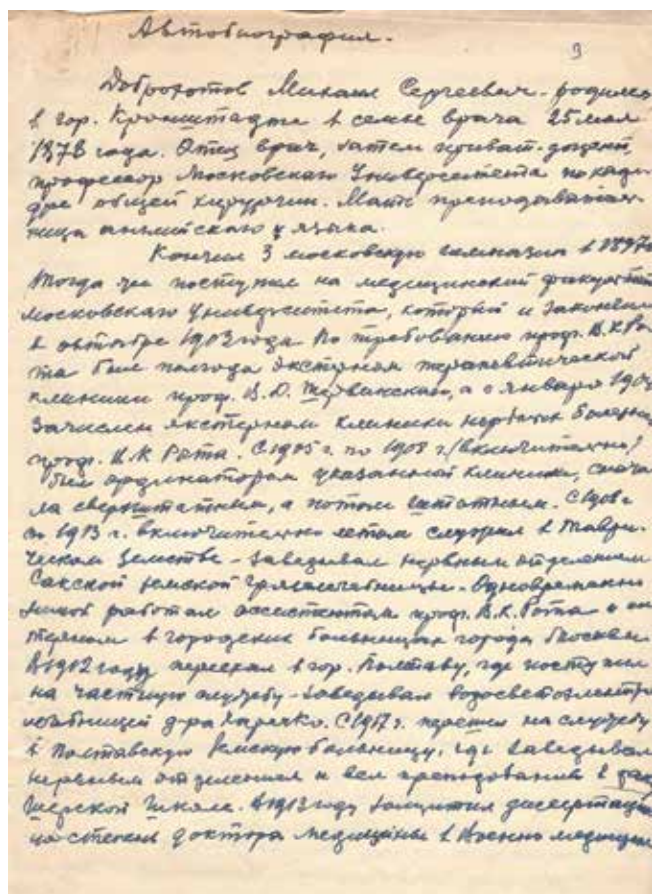 Автобиография.
3
Доброхотов Михаил Сергеевич - родился
в гор. Кронштадте в семье врача 25 мая
1878 года. Отец врач, затем приват-доцент,
профессор Московского Университета по кафе-
дре общей хирургии. Мать преподаватель-
ница английского языка.
Кончил 3 московскую гимназию в 1897 г.
Тогда же поступил на медицинский факультет
Московского Университета, который и закончил
в октябре 1903 года. По требованию проф. В.К. Ро-
та был полгода экстерном терапевтической
клиники проф. В.Д. Шервинского, а с января 1904
зачислен экстерном клиники нервных болезней
проф. В.К. Рота. С 1905 г. по 1908 г. (включительно)
был ординатором указанной клиники, снача-
ла сверхштатным, а потом штатным. С 1908 г.
по 1913 г. включительно летом служил в Таври-
ческом Земстве - заведывал нервным отделением
Сакской земской грязелечебницы. Одновременно
зимой работал ассистентом проф. В.К. Рота и эк-
стерном в городских больницах города Москвы.
В 1912 году переехал в гор. Полтаву, где поступил
на частную службу - заведывал водосветоэлектро
лечебницей д-ра С 1917 г. перешел на службу
в Полтавскую земскую больницу, где заведывал
нервным отделением и вел преподавание в
школе. В 1913 году защитил диссертацию
на степень доктора медицины в Военно медицин